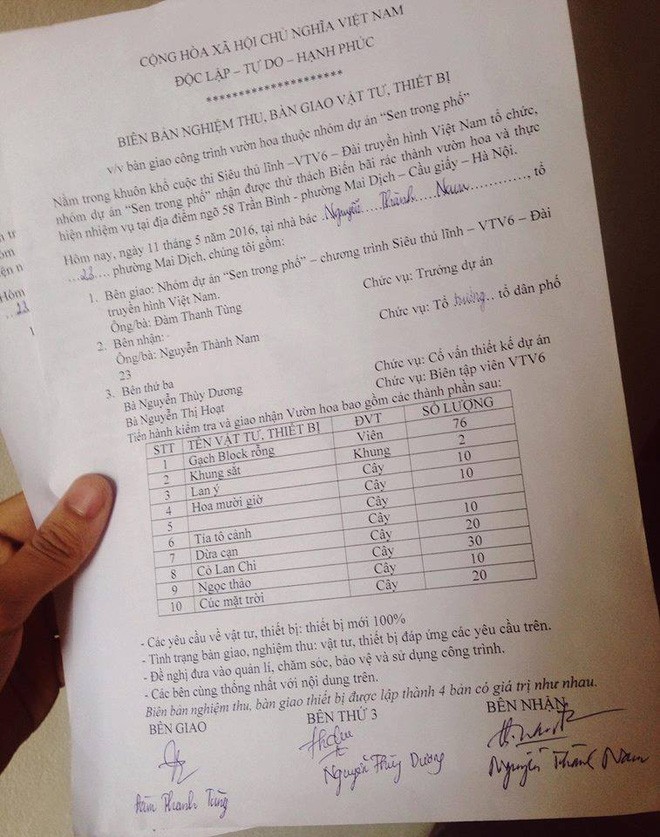 CỘNG HÒA XÃ HỘI CHỦ NGHĨA VIỆT NAM
ĐỘC LẬP – TỰ DO – HẠNH PHÚC
********************
BIÊN BẢN NGHIỆM THU, BÀN GIAO VẬT TƯ, THIẾT BỊ
v/v bàn giao công trình vườn hoa thuộc nhóm dự án “Sen trong phố”
Nằm trong khuôn khổ cuộc thi Siêu thủ lĩnh –VTV6 – Đài truyền hình Việt Nam tổ chức,
nhóm dự án “Sen trong phố” nhận được thử thách Biến bãi rác thành vườn hoa và thực
hiện nhiệm vụ tại địa điểm ngõ 58 Trần Bình - phường Mai Dịch – Cầu giấy – Hà Nội.
Hôm nay, ngày 11 tháng 5 năm 2016, tại nhà bác Nguyễn Thành Nam, tổ
...23.... phường Mai Dịch. chúng tôi gồm:
1. Bên giao: Nhóm dự án “Sen trong phố” – chương trình Siêu thủ lĩnh – VTV6 – Đài
truyền hình Việt Nam.
Ông/bà: Đàm Thanh Tùng Chức vụ: Trưởng dự án
2. Bên nhận:
Ông/bà: Nguyễn Thành Nam Chức vụ: Tổ trưởng.. tổ dân phố
23
3. Bên thứ ba
Bà Nguyễn Thùy Dương Chức vụ: Cố vấn thiết kế dự án
Bà Nguyễn Thị Hoạt Chức vụ: Biên tập viên VTV6
Tiến hành kiểm tra và giao nhận Vườn hoa bao gồm các thành phần sau:
STT TÊN VẬT TƯ, THIẾT BỊ ĐVT SỐ LƯỢNG
1 Gạch Block rỗng Viên 76
2 Khung sắt Khung 2
3 Lan ý Cây 10
4 Hoa mười giờ Cây 10
5 Cây
6 Tía tô cảnh Cây 10
7 Dừa cạn Cây 20
8 Cỏ Lan Chi Cây 30
9 Ngọc thảo Cây 10
10 Cúc mặt trời Cây 20
- Các yêu cầu về vật tư, thiết bị: thiết bị mới 100%
- Tình trạng bàn giao, nghiệm thu: vật tư, thiết bị đáp ứng các yêu cầu trên.
- Đề nghị đưa vào quản lí, chăm sóc, bảo vệ và sử dụng công trình.
- Các bên cùng thống nhất với nội dung trên.
Biên bản nghiệm thu, bàn giao thiết bị được lập thành 4 bản có giá trị như nhau.
BÊN GIAO BÊN THỨ 3 BÊN NHẬN
Đàm Thanh Tùng Nguyễn Thùy Dương Nguyễn Thành Nam